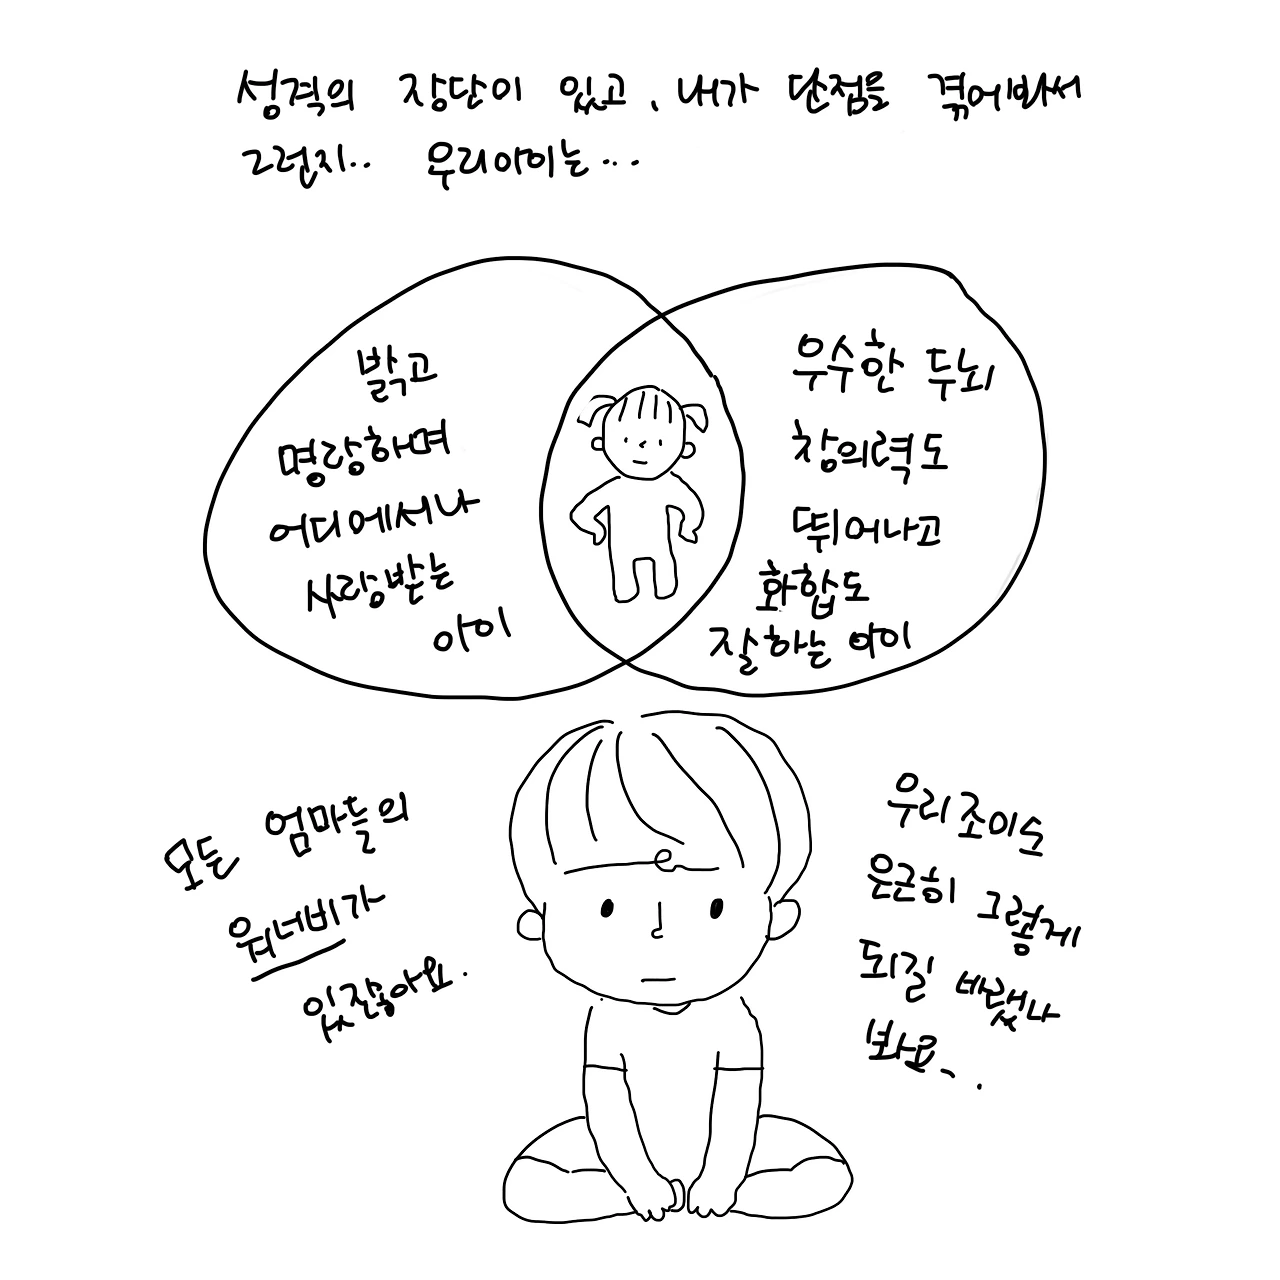 성격의 장단이 있고, 내가 단점을 겪어봐서
그런지.. 우리아이는...
밝고
명랑하며
어디에서나
사랑받는
아이
우수한 두뇌
창의력도
뛰어나고
화합도
잘하는 아이
모든 엄마들의
워너비가
있잖아요.
우리조이도
은근히 그렇게
되길 바랬나
봐요..